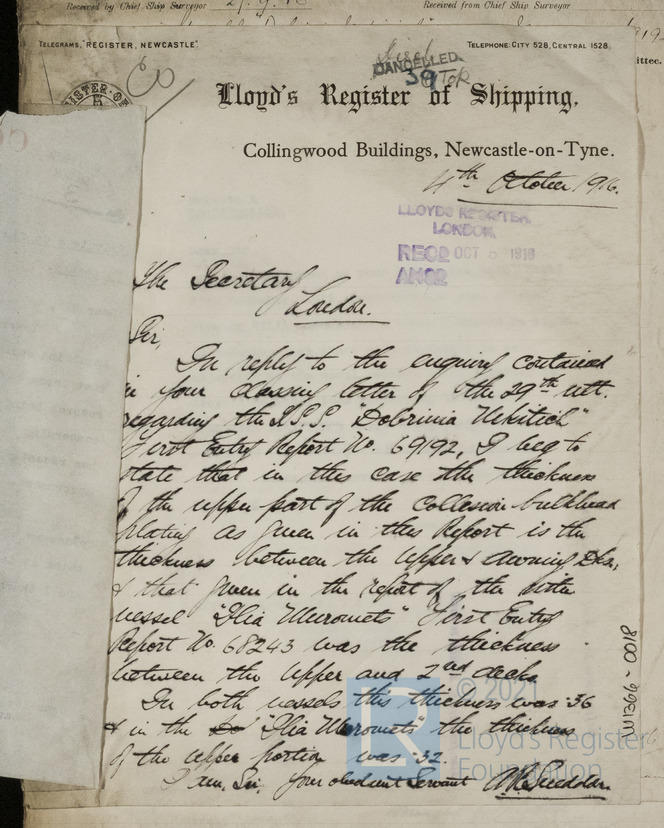 Received by Chief Ship Surveyor
Received from Chief Ship Surveyor
TELEGRAMS, "REGISTER, NEWCASTLE".
TELEPHONE: CITY 528, CENTRAL 1528.
ttee.
CANCELLED
Lloyd's Register of Shipping,
Collingwood Buildings, Newcastle-on-Tyne.
4th October 1916.
LLOYDS REGISTER,
LONDON.
RECD OCT 5 1916
ANSD
The Secretary
London.
Sir,
In reply to the enquiry contained
in your classing letter of the 29th ult.
regarding the I.S.S. "Dobrinia Nikitich"
First Entry Report No. 69192, I beg to
state that in this case the thickness
of the upper part of the collision bulkhead
plating as given in this Report is the
thickness between the Upper & Awning Dks,
& that given in the report of the sister
vessel "Ilia Muromets" First Entry
Report No. 68243 was the thickness
between the Upper and 2nd decks.
In both vessels this thickness was .36
& in the "Ilia Muromets" the thickness
of the upper portion was .32.
I am, Sir, Your obedient Servant
W1366-0018
© 2021
Lloyd's Register
Foundation
LR